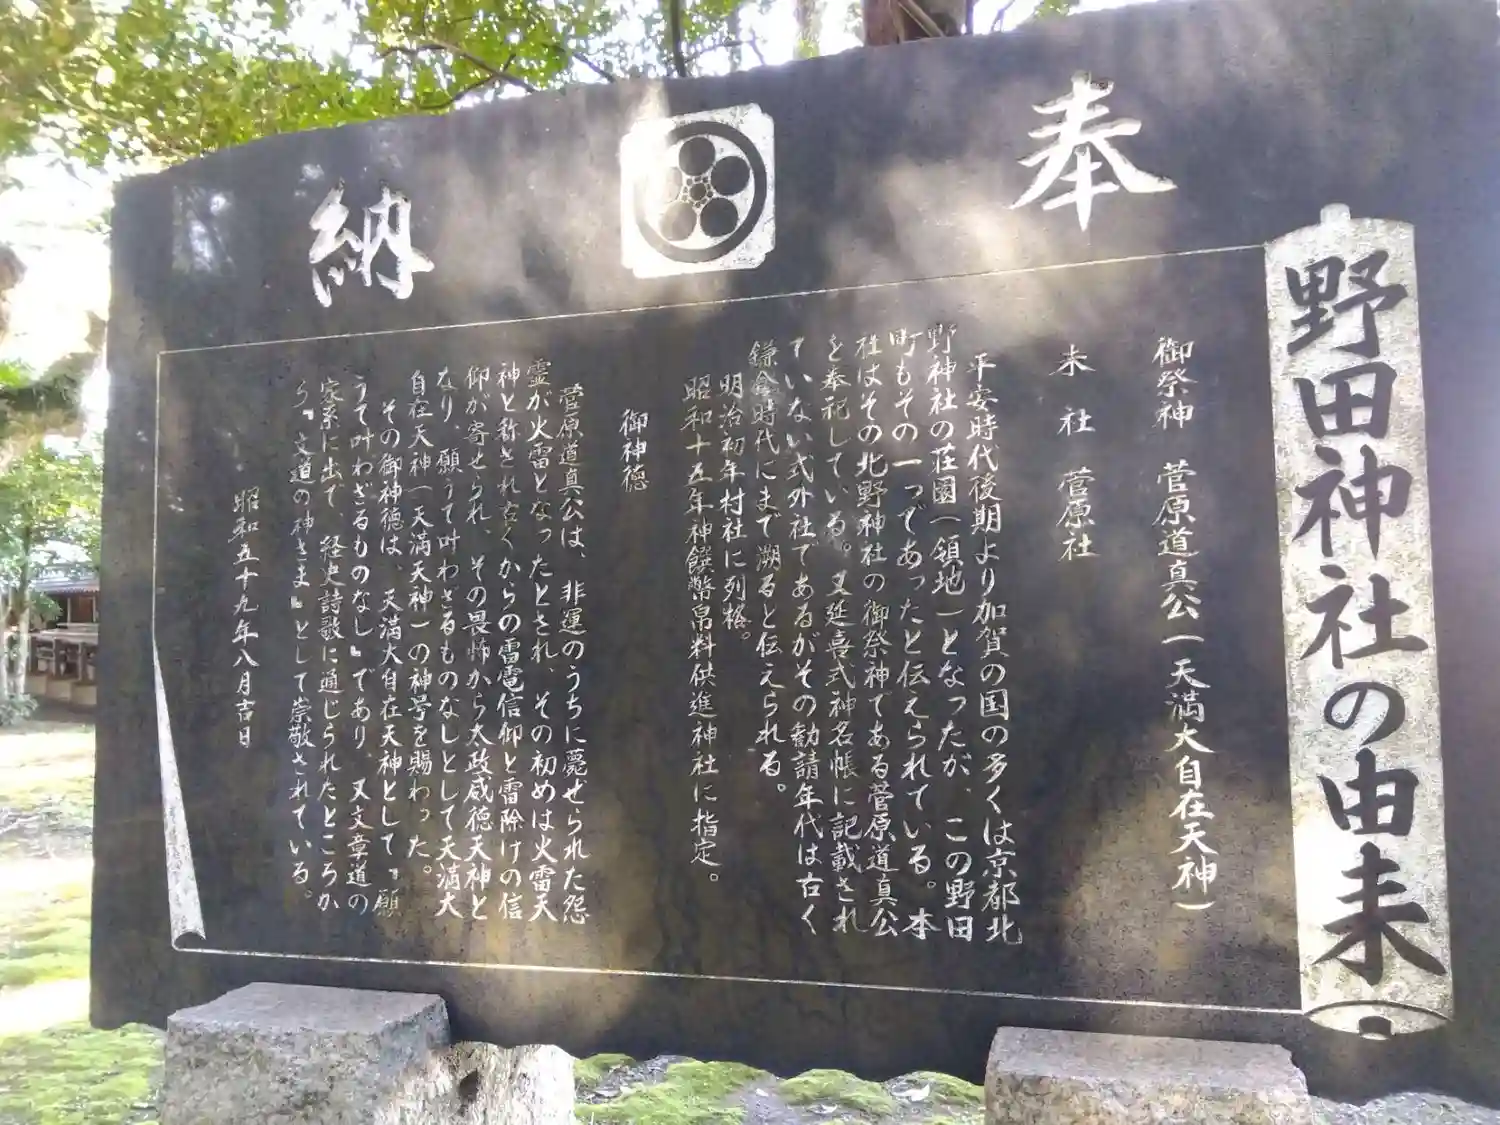 奉納
野田神社の由来
御祭神 菅原道真公(天満大自在天神)
末社 菅原社
平安時代後期より加賀の国の多くは京都北
野神社の荘園(領地)となったが、この野田
町もその一つであったと伝えられている。本
社はその北野神社の御祭神である菅原道真公
を奉祀している。又延喜式神名帳に記載され
ていない式外社であるがその勧請年代は古く
鎌倉時代にまで溯ると伝えられる。
明治初年村社に列格。
昭和十五年神饌幣帛料供進神社に指定。
御神徳
菅原道真公は、非運のうちに薨せられた怨
霊が火雷となったとされ、その初めは火雷天
神と称され古くからの雷電信仰と雷除けの信
仰が寄せられ、その畏怖から太政威徳天神と
なり、願うて叶わざるものなしとして天満大
自在天神(天満天神)の神号を賜わった。
その御神徳は、天満大自在天神として『願
うて叶わざるものなし』であり、又文章道の
家系に出で、経史詩歌に通じられたところか
ら『文道の神さま』として崇敬されている。
昭和五十九年八月吉日